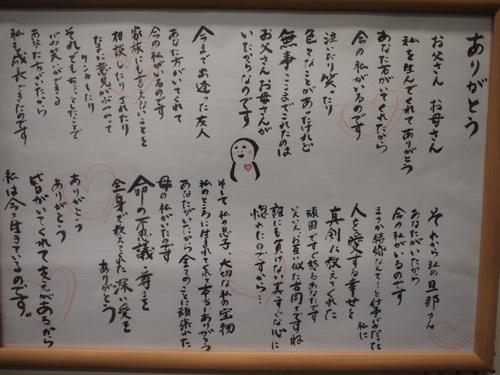 ありがとう
お父さん お母さん
私を生んでくれてありがとう
あなた方がいてくれたから
今の私がいるのです
泣いたり 笑たり
色々なことがあったけれど
無事ここまでこれたのは
お父さんお母さんが
いたからなのです
今まで出逢った友人
あなた方がいてくれて
今の私がいるのです
家族にも言えないことを
相談したり されたり
たまに意見がぶつかって
ケンカしたり
それでも
心から笑いができる
あなた方がいたから
私も成長できたのです
それから 私の旦那さん
あなたがいたから
今の私がいるのです
まさか結婚なんて…と仕事だった
私に
人を愛する幸せと
真剣に教えてくれた
頑固ですぐ怒るあなたです
いえいえ、お互い似た者同士ですね
誰にも負けないまっすぐな心に
惚れたのですから…
そして 私の息子 大切な私の宝物
私のところに生まれてきてくれて本当にありがとう
あなたがいたから 全てのことに頑張れた
母の私がいたのです
命の不思議 尊さを
全身で教えてくれた 深い愛を
ありがとう
ありがとう
ありがとう
ありがとう
皆がいてくれて支えがあるから
私は今を生きているのです。